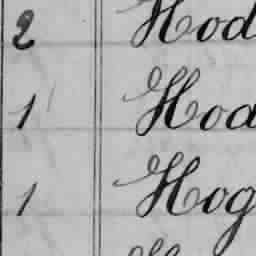 2 Hod
1 Hod
1 Hog